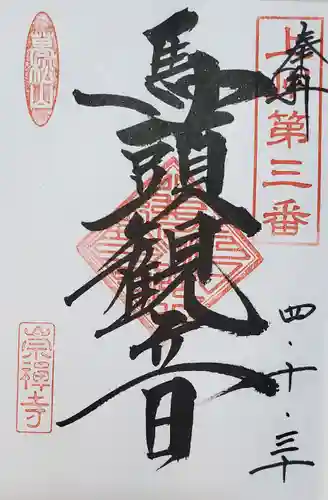 奉拝
第三番
馬頭観音
四・十・三十
萬松山
崇禅寺